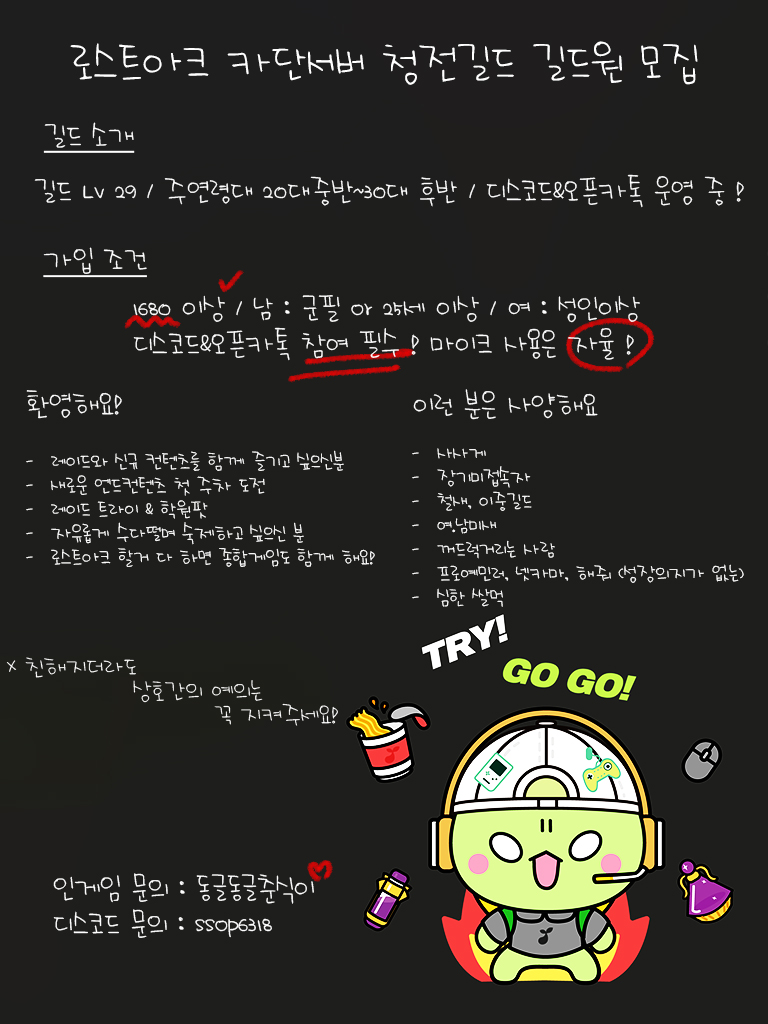 로스트아크 카단서버 청전길드 길드원 모집
길드 소개
길드 LV 29 / 주연령대 20대중반~30대 후반 / 디스코드&오픈카톡 운영 중 !
가입 조건
1680 이상 / 남 : 군필 or 25세 이상 / 여 : 성인이상
디스코드&오픈카톡 참여 필수 ! 마이크 사용은 자율 !
환영해요!
- 레이드와 신규 컨텐츠를 함께 즐기고 싶으신분
- 새로운 엔드컨텐츠 첫 주차 도전
- 레이드 트라이 & 학원팟
- 자유롭게 수다떨며 숙제하고 싶으신 분
- 로스트아크 할거 다 하면 종합게임도 함께 해요!
이런 분은 사양해요
- 사사게
- 장기미접속자
- 철새, 이중길드
- 여,남미새
- 꺼드럭거리는 사람
- 프로예민러, 넷카마, 해줘 (성장의지가 없는)
- 심한 쌀먹
TRY!
GO GO!
x 친해지더라도
상호간의 예의는
꼭 지켜주세요!
인게임 문의 : 동글동글춘식이
디스코드 문의 : ssop6318